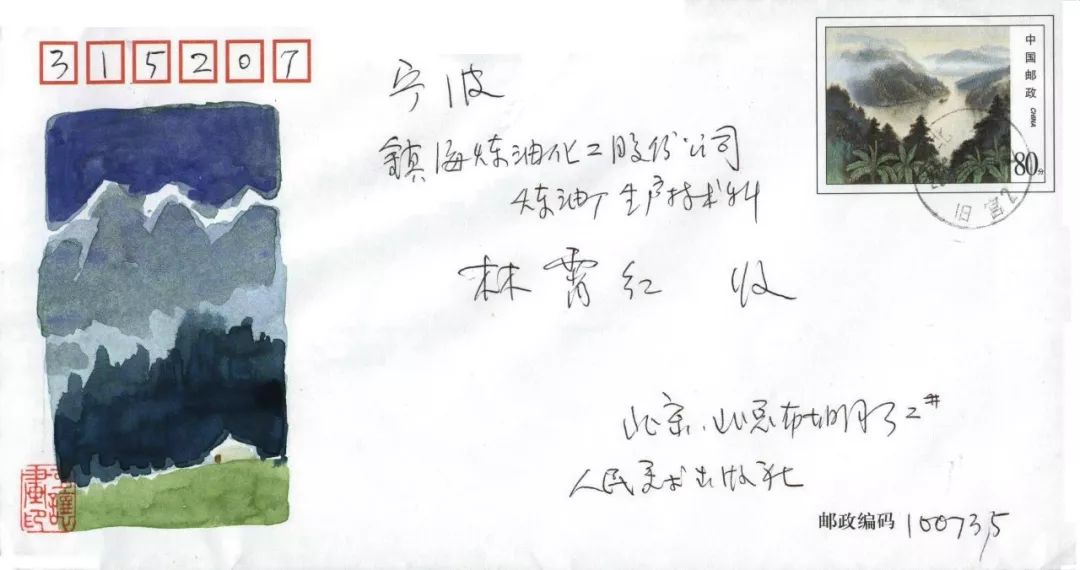 315207
中国邮政
CHINA
80分
宁波
鎮海炼油化工股份公司
炼油厂生产技术科
林霄红 收
旧宫2
北京.北总布胡同32#
人民美术出版社
邮政编码 100735